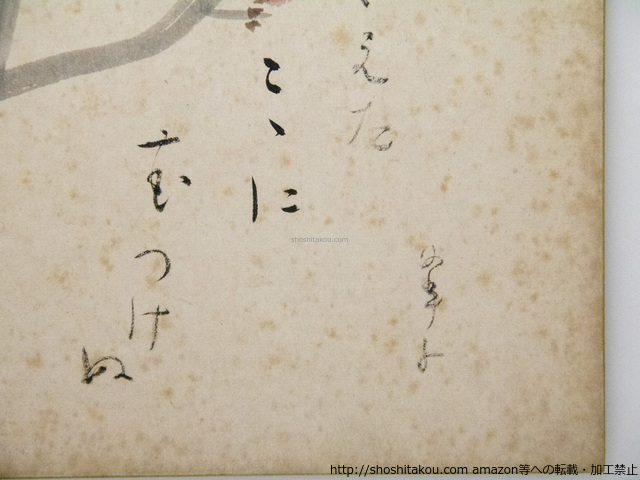 えた
こゝに
つけぬ
shoshitakou.com
http://shoshitakou.com amazon等への転載・加工禁止